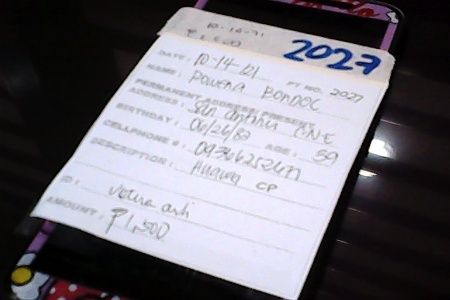 10-14-21
₱1,500
2027
DATE: 10-14-21 PT NO. 2027
NAME: Rowena Bondoc
PERMANENT ADDRESS/PRESENT
ADDRESS: San Antonio
BIRTHDAY: 06/26/82 AGE: 39
CELLPHONE #:
DESCRIPTION: Huawei CP
ID:
AMOUNT: ₱1,500